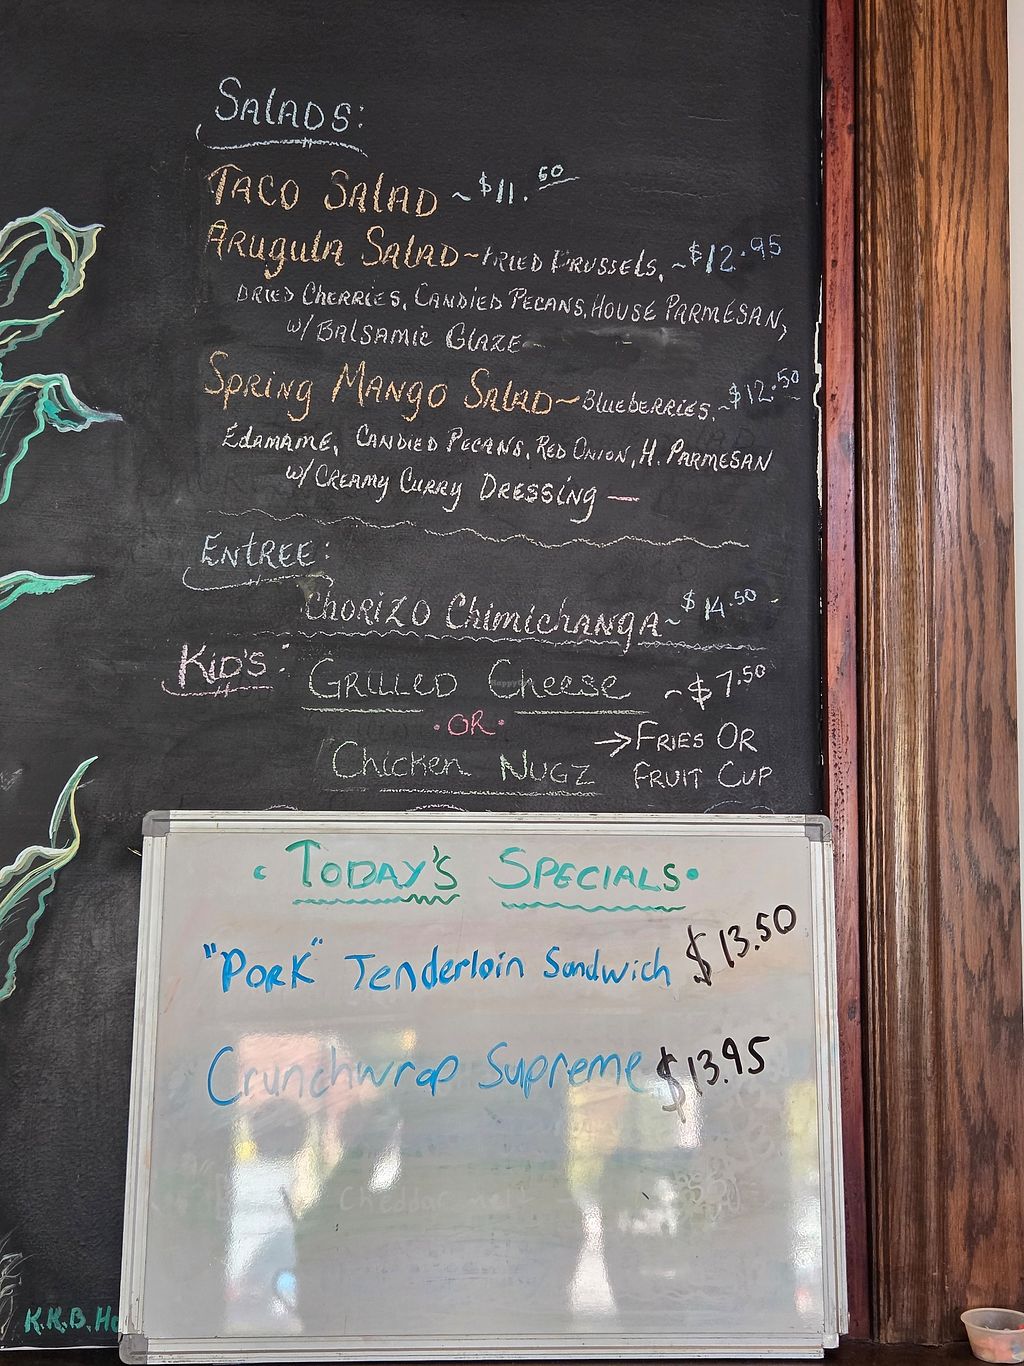 SALADS:
TACO SALAD ~ $11.50
ARUGULA SALAD ~ FRIED BRUSSELS, ~ $12.95
DRIED CHERRIES, CANDIED PECANS, HOUSE PARMESAN,
w/ BALSAMIC GLAZE
SPRING MANGO SALAD ~ BLUEBERRIES, ~ $12.50
EDAMAME, CANDIED PECANS, RED ONION, H. PARMESAN
w/ CREAMY CURRY DRESSING —
ENTREE:
CHORIZO CHIMICHANGA ~ $14.50 -
KID'S: GRILLED CHEESE ~ $7.50
• OR •
CHICKEN NUGZ
→ FRIES OR
FRUIT CUP
• TODAY'S SPECIALS •
"PORK" Tenderloin Sandwich $13.50
Crunchwrap Supreme $13.95
Cheddar
K.K.B.